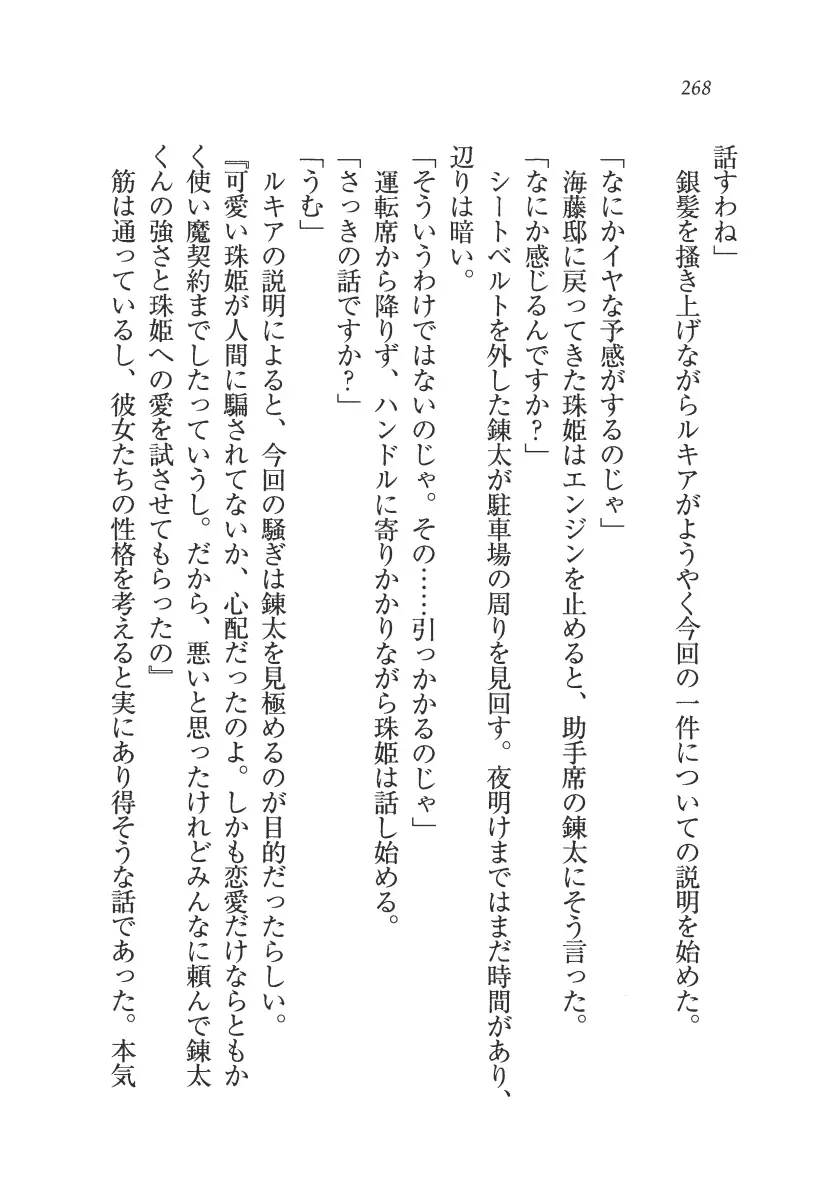 268
話すわね」
　銀髪を掻き上げながらルキアがようやく今回の一件についての説明を始めた。
「なにかイヤな予感がするのじゃ」
　海藤邸に戻ってきた珠姫はエンジンを止めると、助手席の錬太にそう言った。
「なにか感じるんですか？」
　シートベルトを外した錬太が駐車場の周りを見回す。夜明けまではまだ時間があり、
辺りは暗い。
「そういうわけではないのじゃ。その……引っかかるのじゃ」
　運転席から降りず、ハンドルに寄りかかりながら珠姫は話し始める。
「さっきの話ですか？」
「うむ」
　ルキアの説明によると、今回の騒ぎは錬太を見極めるのが目的だったらしい。
『可愛い珠姫が人間に騙されてないか、心配だったのよ。しかも恋愛だけならともか
く使い魔契約までしたっていうし。だから、悪いと思ったけれどみんなに頼んで錬太
くんの強さと珠姫への愛を試させてもらったの』
　筋は通っているし、彼女たちの性格を考えると実にあり得そうな話であった。本気